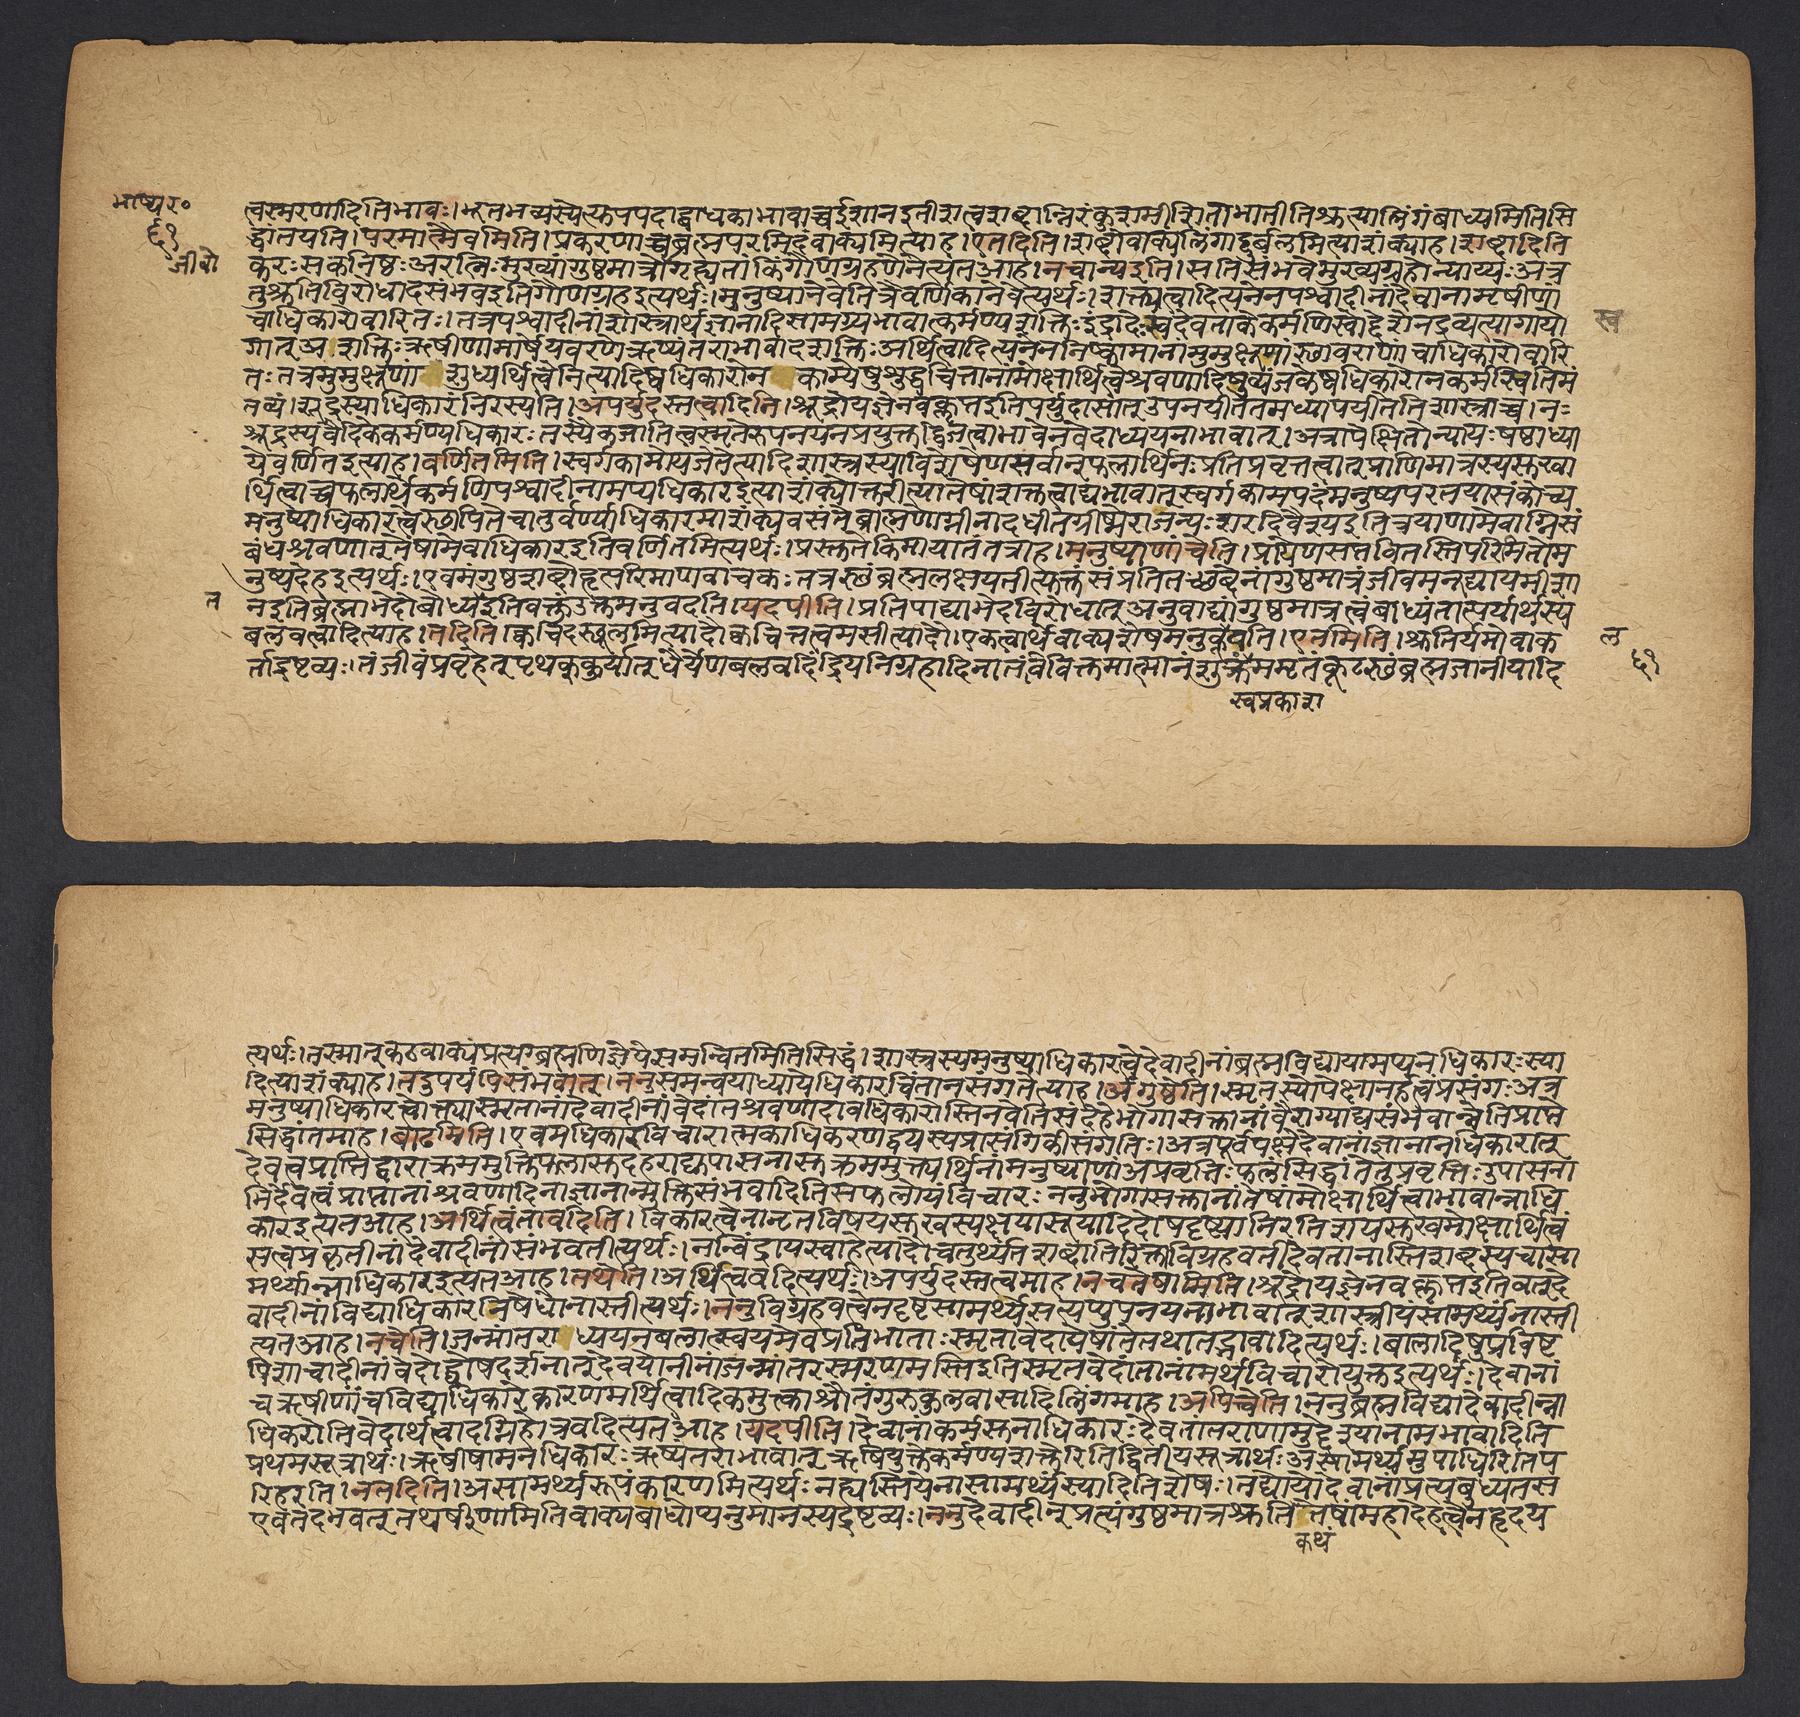 भाष्यर॰
६१
जीवो
त्वस्मरणादितिभावः।भूतभव्यस्येत्युपपदाद्बाधकाभावाच्चईशानइतीशत्वशब्दान्निरंकुशमीशिताभातीतिश्रुत्यालिंगंबाध्यमितिसि
द्धांतयति।परमात्मैवमिति।प्रकरणाच्चब्रह्मपरमिदंवाक्यमित्याह।एतदिति।शब्दोवाक्यलिंगाद्दुर्बलमित्याशंक्याह।शब्दादिति
करःसकनिष्ठःअरत्निःमुख्यांगुष्ठमात्रोगृह्यतांकिंगौणग्रहणेनेत्यतआह।नचान्यइति।सतिसंभवेमुख्यग्रहोन्याय्यःअत्र
तुश्रुतिविरोधादसंभवइतिगौणग्रहइत्यर्थः।मनुष्यानेवेतित्रैवर्णिकानेवेत्यर्थः।शक्तत्वादित्यनेनपश्वादीनांदेवानामृषीणां
चाधिकारोवारितः।तत्रपश्वादीनांशास्त्रार्थज्ञानादिसामग्र्यभावात्कर्मण्यशक्तिःइंद्रादेःस्वदेवताकेकर्मणिस्वोद्देशेनद्रव्यत्यागायो
गात्अशक्तिःऋषीणामार्षेयवरणेऋष्यंतराभावादशक्तिःअर्थित्वादित्यनेननिष्कामानांमुमुक्षूणांस्थावराणांचाधिकारोवारि
तःतत्रमुमुक्षूणां शुध्यर्थित्वेनित्यादिष्वधिकारोन काम्येषुशुद्धचित्तानांमोक्षार्थित्वेश्रवणादिषुव्यंजकेष्वधिकारोनकर्मस्वितिमं
तव्यं।शूद्रस्याधिकारंनिरस्यति।अपर्युदस्तत्वादिति।शूद्रोयज्ञेनवक्लृप्तइतिपर्युदासात्उपनयीततमध्यापयीतेतिशास्त्राच्च।न
शूद्रस्यवैदिककर्मण्यधिकारःतस्यैकजातित्वस्मृतेरुपनयनप्रयुक्तद्विजत्वाभावेनवेदाध्ययनाभावात्।अत्रापेक्षितोन्यायःषष्ठाध्या
येवर्णितइत्याह।वर्णितमिति।स्वर्गकामोयजेतेत्यादिशास्त्रस्याविशेषेणसर्वान्फलार्थिनःप्रतिप्रवृत्तत्वात्प्राणिमात्रस्यसुखा
र्थित्वाच्चफलार्थेकर्मणिपश्वादीनामप्यधिकारइत्याशंक्योक्तरीत्यातेषांशक्तत्वाद्यभावात्स्वर्गकामपदंमनुष्यपरतयासंकोच्य
मनुष्याधिकारत्वेस्थापितेचातुर्वर्ण्याधिकारमाशंक्यवसंतेब्राह्मणोग्नीनादधीतग्रीष्मेराजन्यःशरदिवैश्यइतित्रयाणामेवाग्निसं
बंधश्रवणात्तेषामेवाधिकारइतिवर्णितमित्यर्थः।प्रस्तुतेकिमायातंतत्राह।मनुष्याणांचेति।प्रायेणसप्तवितस्तिपरिमितोम
नुष्यदेहइत्यर्थः।एवमंगुष्ठशब्दोहृत्परिमाणवाचकःतत्रस्थंब्रह्मलक्षयतीत्युक्तंसंप्रतितच्छब्देनांगुष्ठमात्रंजीवमनूद्यायमीशा
त
नइतिब्रह्माभेदोबोध्यइतिवक्तुंउक्तमनुवदति।यदपीति।प्रतिपाद्याभेदविरोधात्अनुवाद्यांगुष्ठमात्रत्वंबाध्यंतात्पर्यार्थस्य
बलवत्वादित्याह।तदिति।क्वचिदस्थूलमित्यादौक्वचित्तत्वमसीत्यादौ।एकत्वार्थेवाक्यशेषमनुकूलयति।एतमिति।श्रुतिर्यमोवाक
र्ताद्रष्टव्यः।तंजीवंप्रवृहेत्पृथक्कुर्यात्धैर्येणबलवदिंद्रियनिग्रहादिनातंविविक्तमात्मानंशुक्रंअमृतंकूटस्थंब्रह्मजानीयादि
स्वप्रकाश
स्व
ल
६१
त्यर्थः।तस्मात्कठवाक्यंप्रत्यग्ब्रह्मणिज्ञेयेसमन्वितमितिसिद्धं।शास्त्रस्यमनुष्याधिकारत्वेदेवादीनांब्रह्मविद्यायामप्यनधिकारःस्या
दित्याशंक्याह।तदुपर्यपिसंभवात्।ननुसमन्वयाध्यायेधिकारचिंतानसंगतेत्याह।अंगुष्ठेति।स्मृतस्योपेक्षानर्हत्वंप्रसंगःअत्र
मनुष्याधिकारत्वोक्त्यास्मृतानांदेवादीनांवेदांतश्रवणादावधिकारोस्तिनवेतिसंदेहेभोगासक्तानांवैराग्याद्यसंभवान्नेतिप्राप्ते
सिद्धांतमाह।बाढमिति।एवमधिकारविचारात्मकाधिकरणद्वयस्यप्रासंगिकीसंगतिः।अत्रपूर्वपक्षेदेवानांज्ञानानधिकारात्
देवत्वप्राप्तिद्वाराक्रममुक्तिफलासुदहराद्युपासनासुक्रममुक्त्यर्थिनांमनुष्याणांअप्रवृत्तिःफलंसिद्धांतेतुप्रवृत्तिःउपासना
भिर्देवत्वंप्राप्तानांश्रवणादिनाज्ञानान्मुक्तिसंभवादितिसफलोयंविचारःननुभोगासक्तानांतेषामोक्षार्थित्वाभावान्नाधि
कारइत्यतआह।अर्थित्वंतावदिति।विकारत्वेनानृतविषयसुखस्यक्षयासूयादिदोषदृष्ट्यानिरतिशयसुखमोक्षार्थित्वं
सत्वप्रकृतीनांदेवादीनांसंभवतीत्यर्थः।नन्विंद्रायस्वाहेत्यादौचतुर्थ्यंतशब्दातिरिक्ताविग्रहवतीदेवतानास्तिशब्दस्यचासा
मर्थ्यान्नाधिकारइत्यतआह।तथेति।अर्थित्ववदित्यर्थः।अपर्युदस्तत्वमाह।नचतेषामिति।शूद्रोयज्ञेनवक्लृप्तइतिवत्दे
वादीनांविद्याधिकारेनिषेधोनास्तीत्यर्थः।ननुविग्रहवत्वेनदृष्टसामर्थ्येसत्यप्युपनयनाभावात्शास्त्रीयंसामर्थ्यंनास्ती
त्यतआह।नचेति।जन्मांतरा ध्ययनबलात्स्वयमेवप्रतिभाताःस्मृतावेदायेषांतेतथातद्भावादित्यर्थः।बालादिषुप्रविष्ट
पिशाचादीनांवेदोद्घोषदर्शनात्देवयोनीनांजन्मांतरस्मरणमस्तिइतिस्मृतवेदांतानांमर्थविचारोयुक्तइत्यर्थः।देवानां
चऋषीणांचविद्याधिकारेकारणमर्थित्वादिकमुक्त्वाश्रौतंगुरुकुलवासादिलिंगमाह।अपिचेति।ननुब्रह्मविद्यादेवादीन्ना
धिकरोतिवेदार्थत्वादग्निहोत्रवदित्यतआह।यदपीति।देवानांकर्मसुनाधिकारःदेवतांतराणामुद्देश्यानामभावादिति
प्रथमसूत्रार्थः।ऋषीणामनधिकारःऋष्यंतराभावात्ऋषियुक्तेकर्मण्यशक्तेरितिद्वितीयसूत्रार्थःअसामर्थ्यमुपाधिरितिप
रिहरति।नतदिति।असामर्थ्यरूपंकारणमित्यर्थःनह्यस्तियेनासामर्थ्यंस्यादितिशेषः।तद्योयोदेवानांप्रत्यबुध्यतस
एवतदभवत्तथर्षीणामितिवाक्यबाधोप्यनुमानस्यद्रष्टव्यः।ननुदेवादीन्प्रत्यंगुष्ठमात्रश्रुतिःतेषांमहादेहत्वेनहृदय
कथं